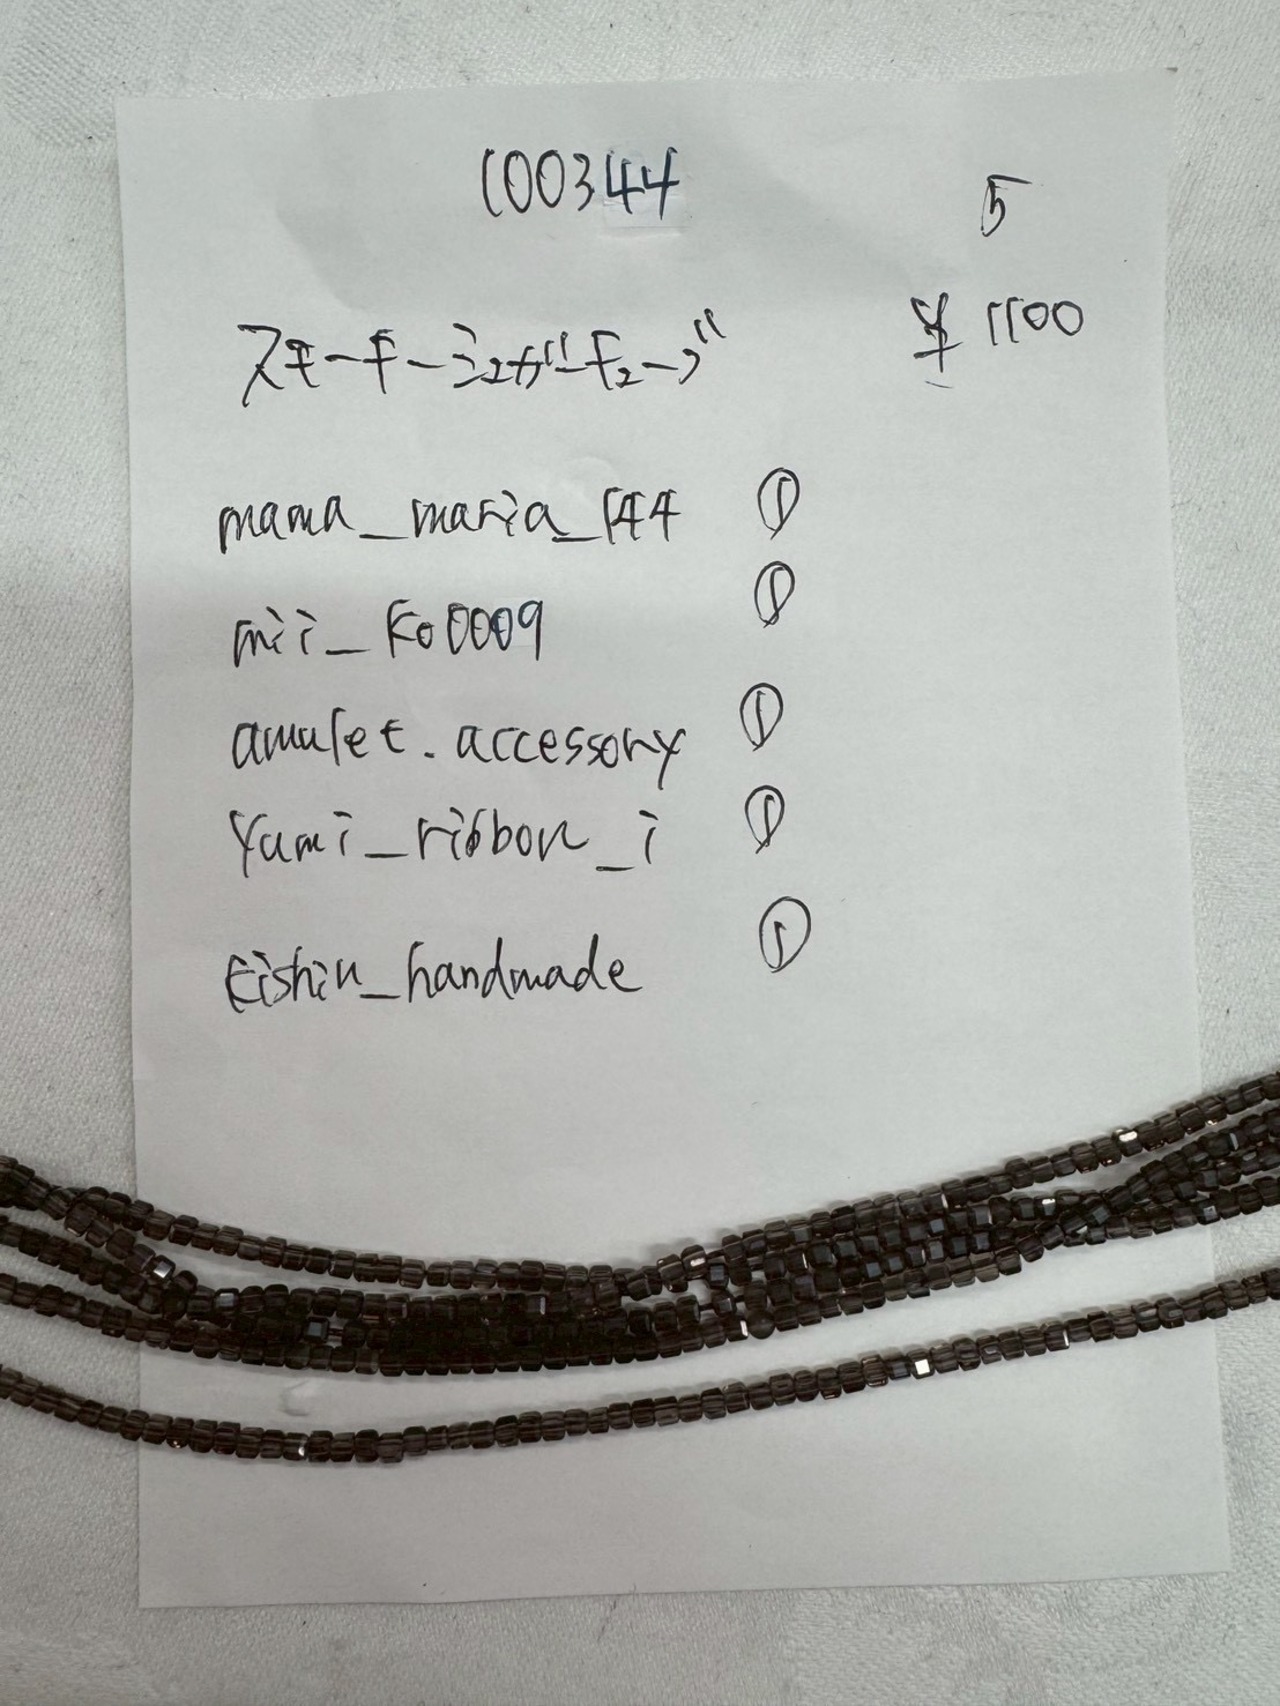 100344
5
スモーキーシュガーキューブ
¥1100
mama_maria_144 ①
mii_ko0009 ①
amulet.accessory ①
yumi_ribbon_i ①
Eishin_handmade ①